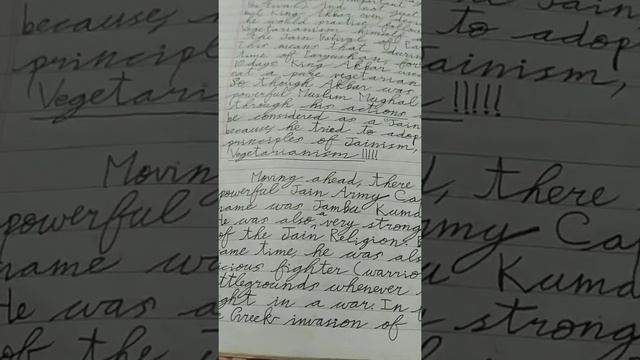 not King Akbar even
he would practice
Vegetarianism himself
the Jain Ritual of
this meant that during
time of Paryushan, for
10 days King Akbar used
eat a pure vegetarian
So though Akbar was
powerful Muslim Mughal
through his actions
be considered as a Jain
because he tried to adop
principles of Jainism,
Vegetarianism !!!!!
Moving ahead, there
powerful Jain Army Ca
name was Jambu Kuma
He was also very strong
of the Jain Religion.
ame time, he was als
cious fighter (warrio
ttlegrounds whenever
ght in a war. In
Greek invasion of